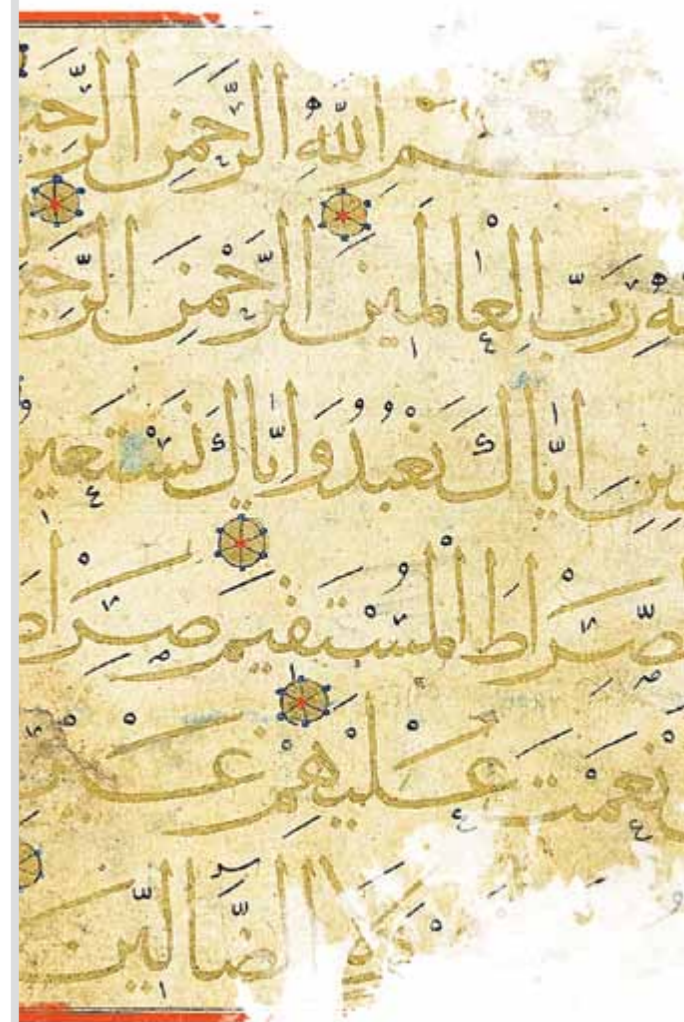 بِسْمِ اللّٰهِ الرَّحْمٰنِ الرَّحِيـ
ـلّٰهِ رَبِّ الْعٰالَمِينَ الرَّحْمٰنِ الرَّحِيـ
ـدِّينِ اِيّٰاكَ نَعْبُدُ وَاِيّٰاكَ نَسْتَعِينُ
ـصِّرَاطَ الْمُسْتَقِيمَ صِرَاطَ
ـنْعَمْتَ عَلَيْهِمْ غَيْرِ
وَلَا الضَّالِّينَ